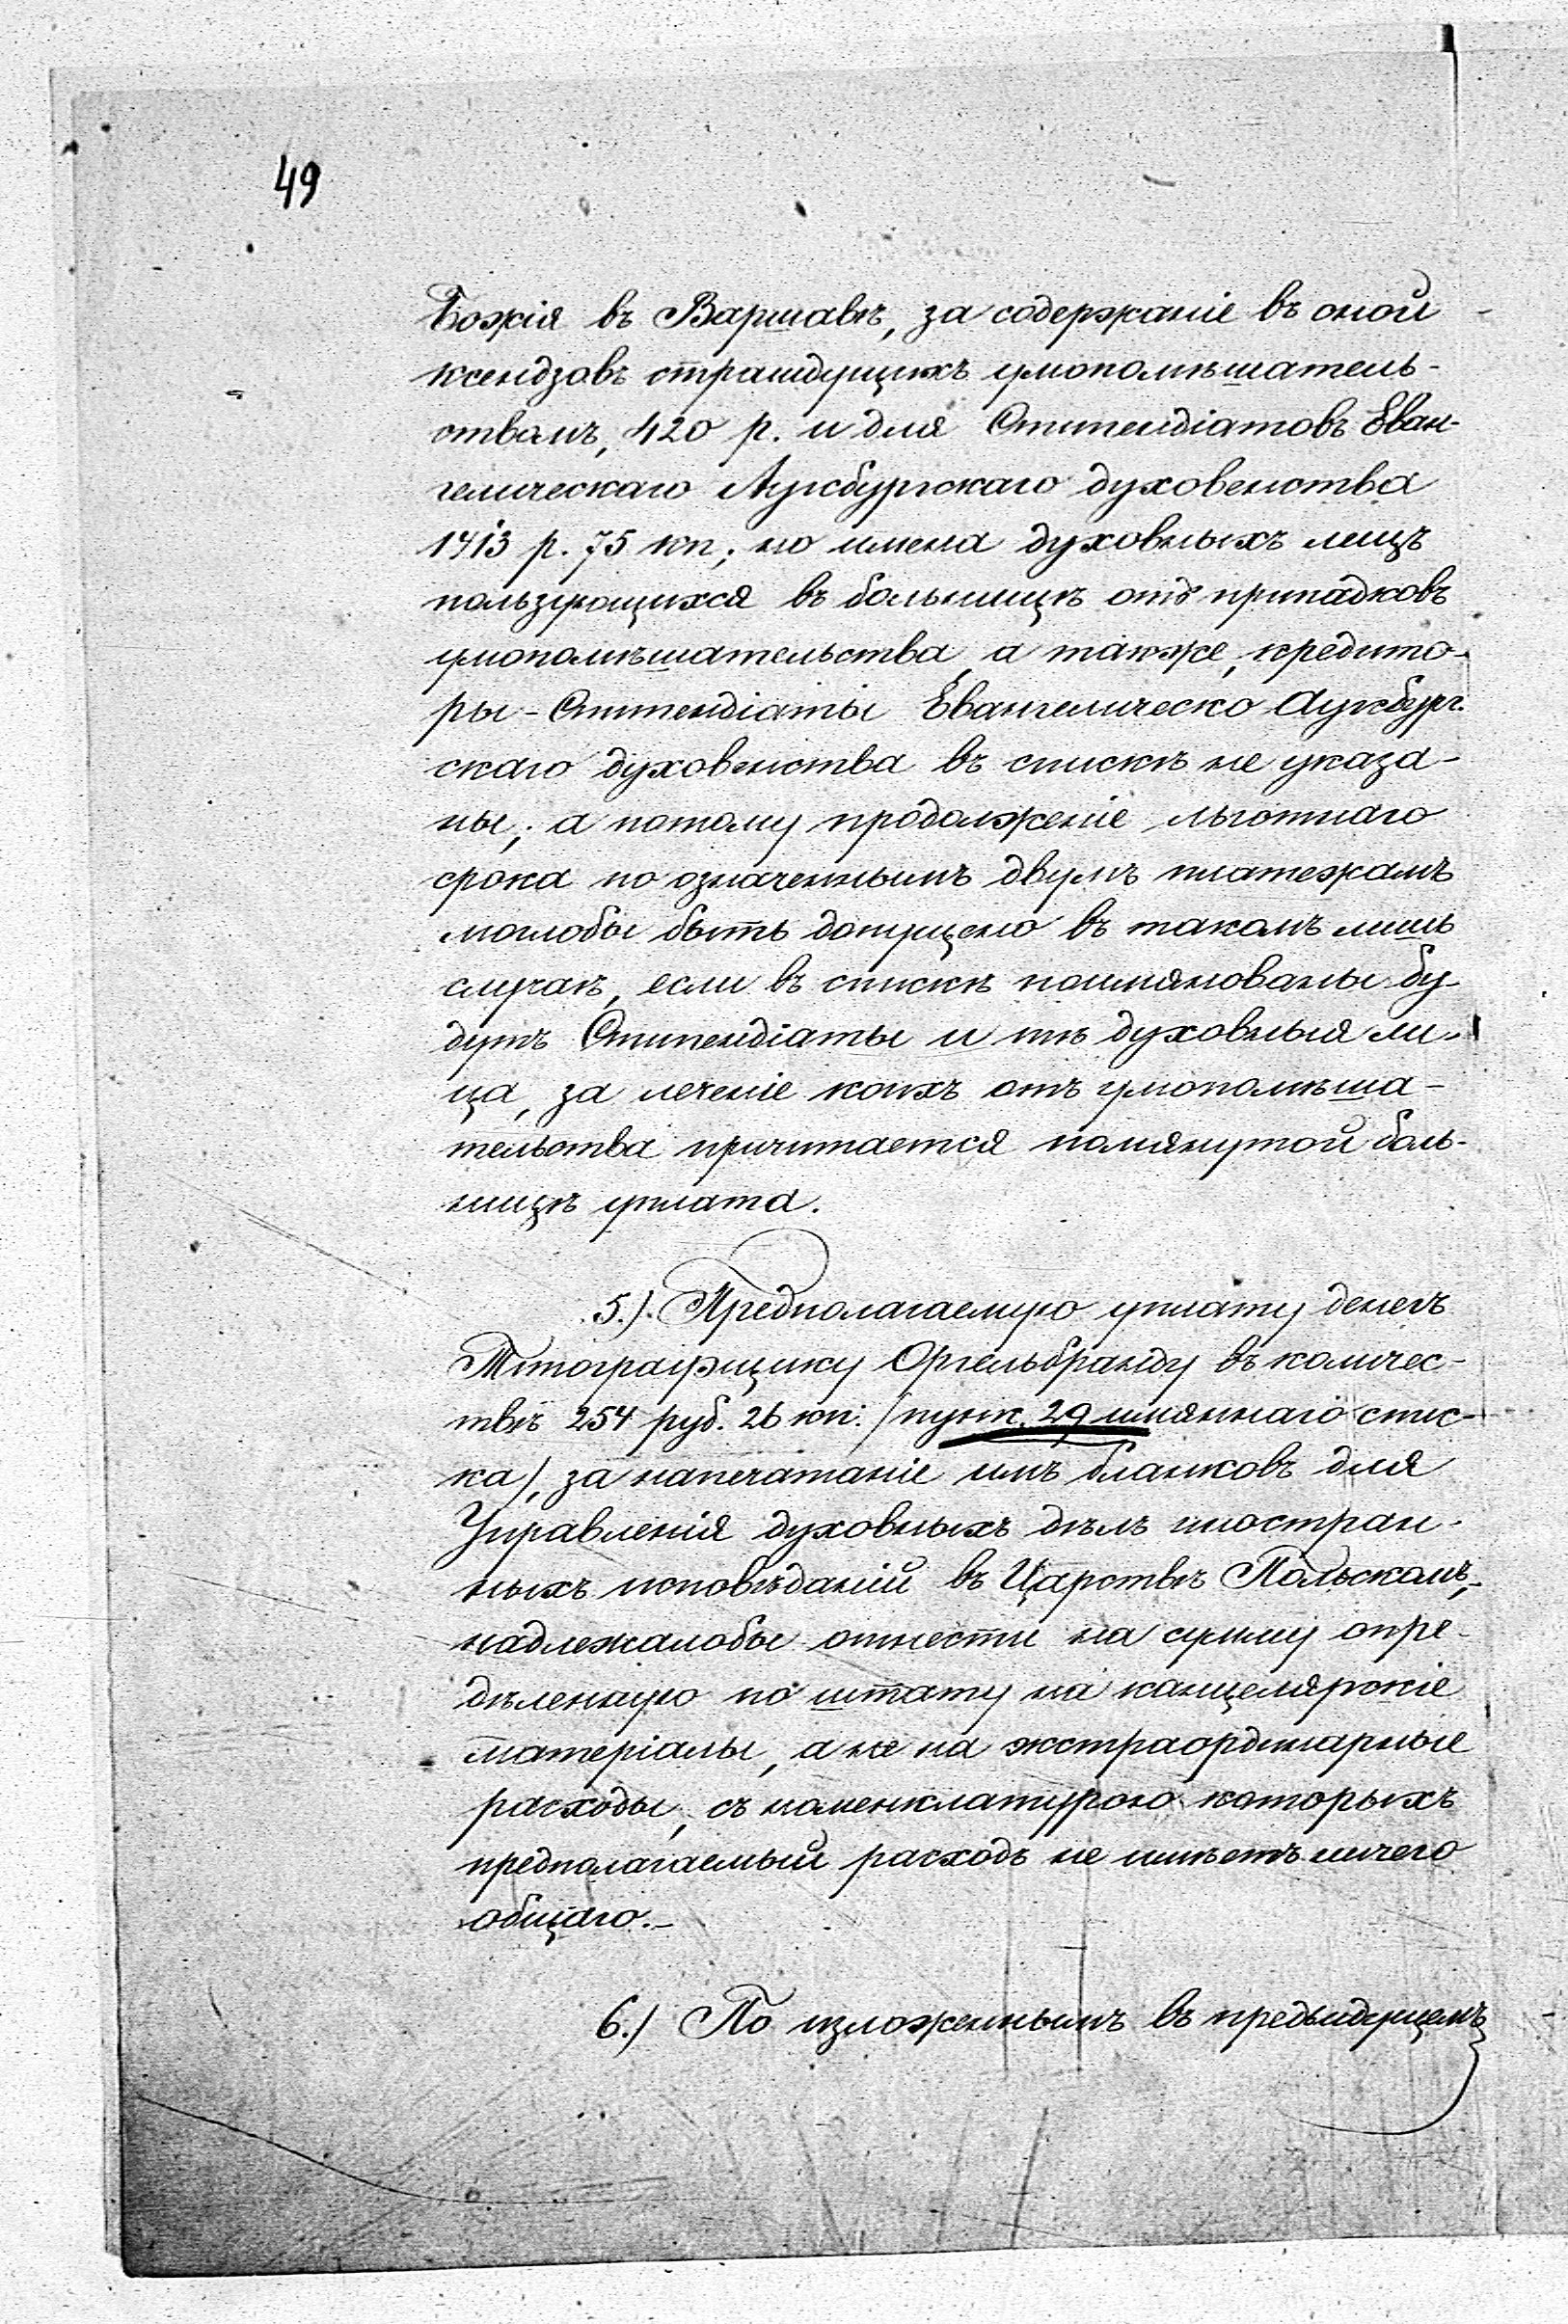 49
Божія въ Варшавѣ, за содержаніе въ оной
ксендзовъ страждущихъ умопомѣшатель-
ствомъ, 420 р. и для Стипендіатовъ Еван-
гелическаго Аугсбургскаго духовенства
1413 р. 75 кп; но имена духовныхъ лицъ
пользующихся въ больницѣ отъ припадковъ
умопомѣшательства, а также, кредито-
ры-Стипендіаты Евангелическо Аугсбург-
скаго духовенства въ спискѣ не указа-
ны; а потому продолженіе льготнаго
срока по означеннымъ двумъ платежамъ
моглобы быть допущено въ такомъ лишь
случаѣ, если въ спискѣ поимянованы бу-
дутъ Стипендіаты и тѣ духовныя ли-
ца, за леченіе коихъ отъ умопомѣша-
тельства причитается помянутой боль-
ницѣ уплата.
5.). Предполагаемую уплату денегъ
Типографщику Оргельбранду въ количес-
твѣ 254 руб. 26 кп: /пунк. 29 имяннаго спис-
ка/, за напечатаніе имъ бланковъ для
Управленія духовныхъ дѣлъ иностран-
ныхъ исповѣданій въ Царствѣ Польскомъ,
надлежалобы отнести на сумму опре-
дѣленную по штату на канцелярскіе
матеріалы, а не на экстраординарные
расходы, съ номенклатурою которыхъ
предполагаемый расходъ не имѣетъ ничего
общаго.-
6.) По изложеннымъ въ предъидущемъ